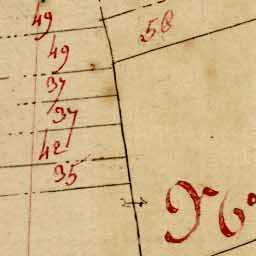 49
58
49
37
37
42
35
N°